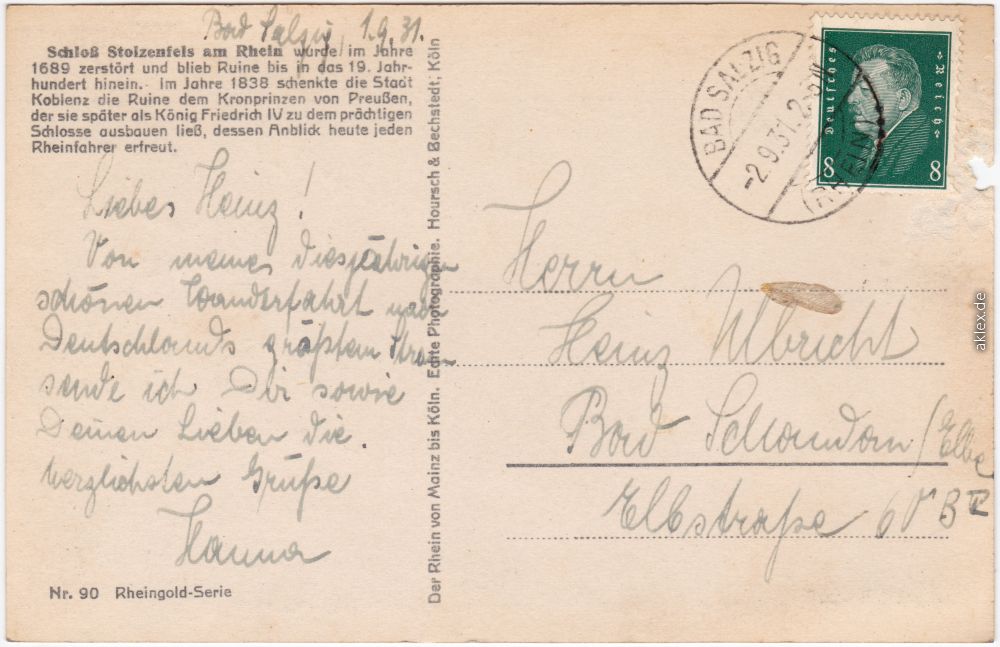 Bad Salzig, 1.9.31.
Schloß Stolzenfels am Rhein wurde im Jahre
1689 zerstört und blieb Ruine bis in das 19. Jahr-
hundert hinein. Im Jahre 1838 schenkte die Stadt
Koblenz die Ruine dem Kronprinzen von Preußen,
der sie später als König Friedrich IV zu dem prächtigen
Schlosse ausbauen ließ, dessen Anblick heute jeden
Rheinfahrer erfreut.
Liebes Heinz!
Von meiner diesjährigen
schönen Wanderfahrt nach
Deutschlands größtem Strom
sende ich Dir sowie
Deinen Lieben die
herzlichsten Grüße
Hanna
Nr. 90 Rheingold-Serie
Der Rhein von Mainz bis Köln. Echte Photographie. Hoursch & Bechstedt, Köln
BAD SALZIG
-2.9.31.2
(RHEIN)
Deutsches Reich
8 8
Herrn
Heinz Ulbricht
Bad Schandau/Elbe
Elbstraße 60 B
aklex.de